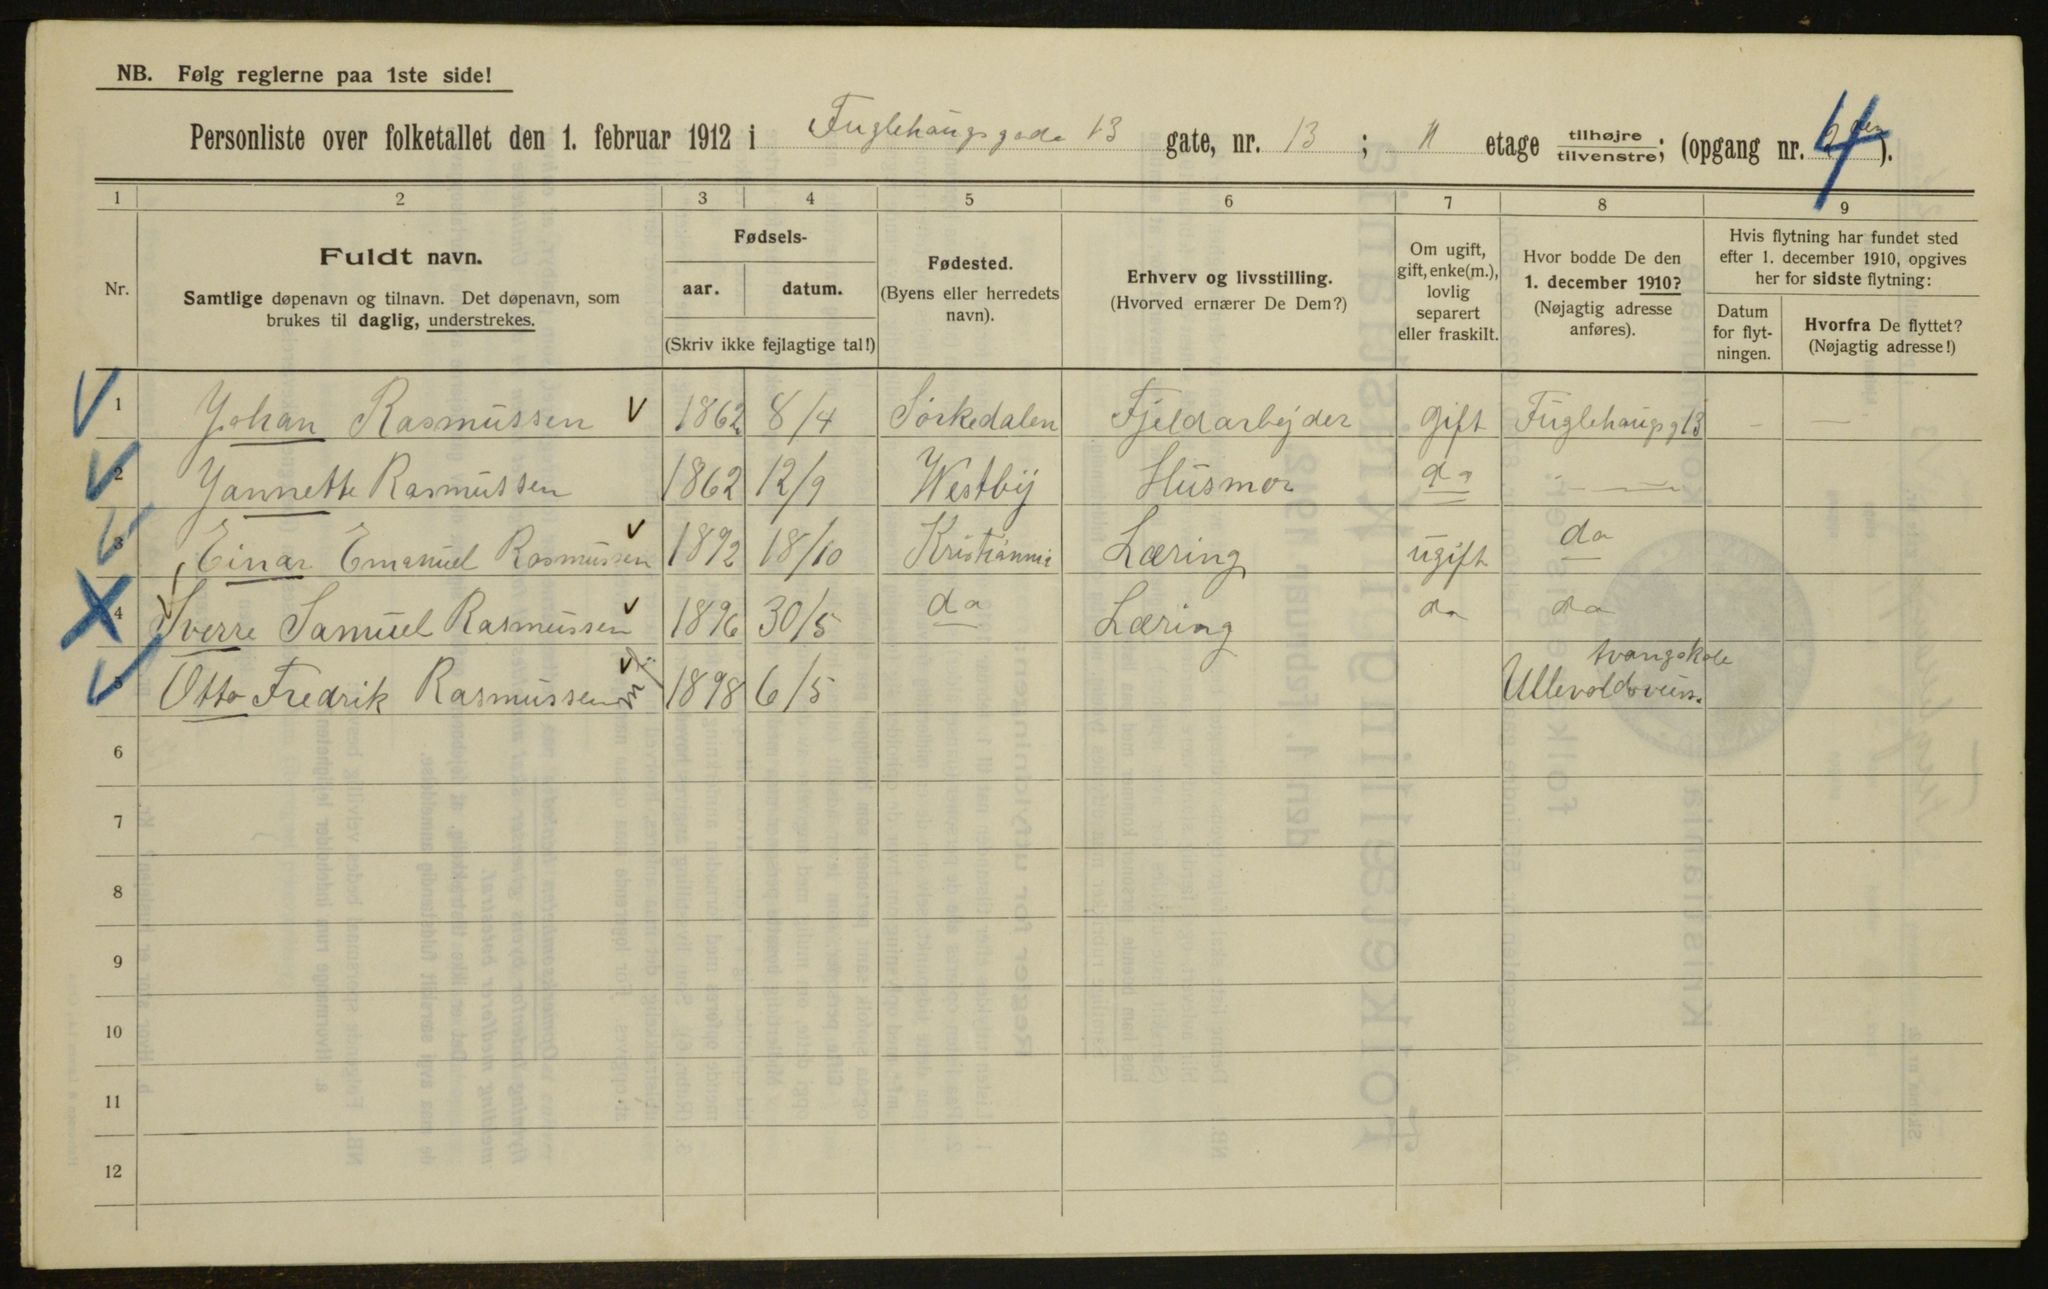 NB. Følg reglerne paa 1ste side!
Personliste over folketallet den 1. februar 1912 i Fuglehaugsgade 13 gate, nr. 13; II etage tilhøjre/tilvenstre; (opgang nr. 4).
1 2 3 4 5 6 7 8 9
Nr.
Fuldt navn.
Samtlige døpenavn og tilnavn. Det døpenavn, som
brukes til daglig, understrekes.
Fødsels-
aar. datum.
(Skriv ikke fejlagtige tal!)
Fødested.
(Byens eller herredets
navn).
Erhverv og livsstilling.
(Hvorved ernærer De Dem?)
Om ugift,
gift, enke(m.),
lovlig
separert
eller fraskilt.
Hvor bodde De den
1. december 1910?
(Nøjagtig adresse
anføres).
Hvis flytning har fundet sted
efter 1. december 1910, opgives
her for sidste flytning:
Datum
for flyt-
ningen.
Hvorfra De flyttet?
(Nøjagtig adresse!)
1 Johan Rasmussen 1862 8/4 Sørkedalen Fjeldarbejder gift Fuglehaugsg 13 — —
2 Jannette Rasmussen 1862 12/9 Westby Husmor do — —
3 Einar Emanuel Rasmussen 1892 18/10 Kristiannia Læring ugift do
4 Sverre Samuel Rasmussen 1896 30/5 do Læring do do
5 Otto Fredrik Rasmussen 1898 6/5 tvangskole
6
7
8
9
10
11
12